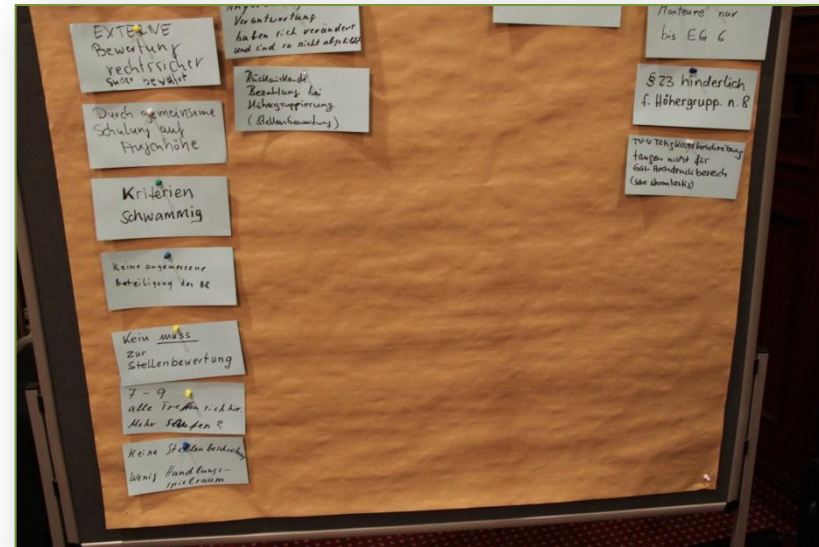 EXTERNE
Bewertung
rechtssicher
bewährt
Durch gemeinsame
Schulung auf
Augenhöhe
Kriterien
schwammig
Keine angemessene
Beteiligung des BR
Kein muss
zur
Stellenbewertung
7 - 9
alle Treffen sich hier.
Mehr Stufen?
Keine Stellenbeschreibung
Wenig Handlungs-
spielraum
Verantwortung
haben sich verändert
und sind so nicht abgebildet
Rückwirkende
Bezahlung bei
Höhergruppierung
(Stellenbewertung)
Monteure nur
bis EG 6
§ 23 hinderlich
f. Höhergrupp. n. 8
TV-V Tätigkeitsbeschreibung
taugen nicht für
Gas Hochdruckbereich